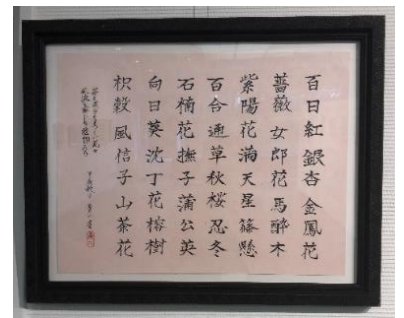 百日紅銀杏金鳳花
薔薇女郎花馬酔木
紫陽花満天星篠懸
百合通草秋桜忍冬
石楠花撫子蒲公英
向日葵沈丁花榕樹
枳殻風信子山茶花